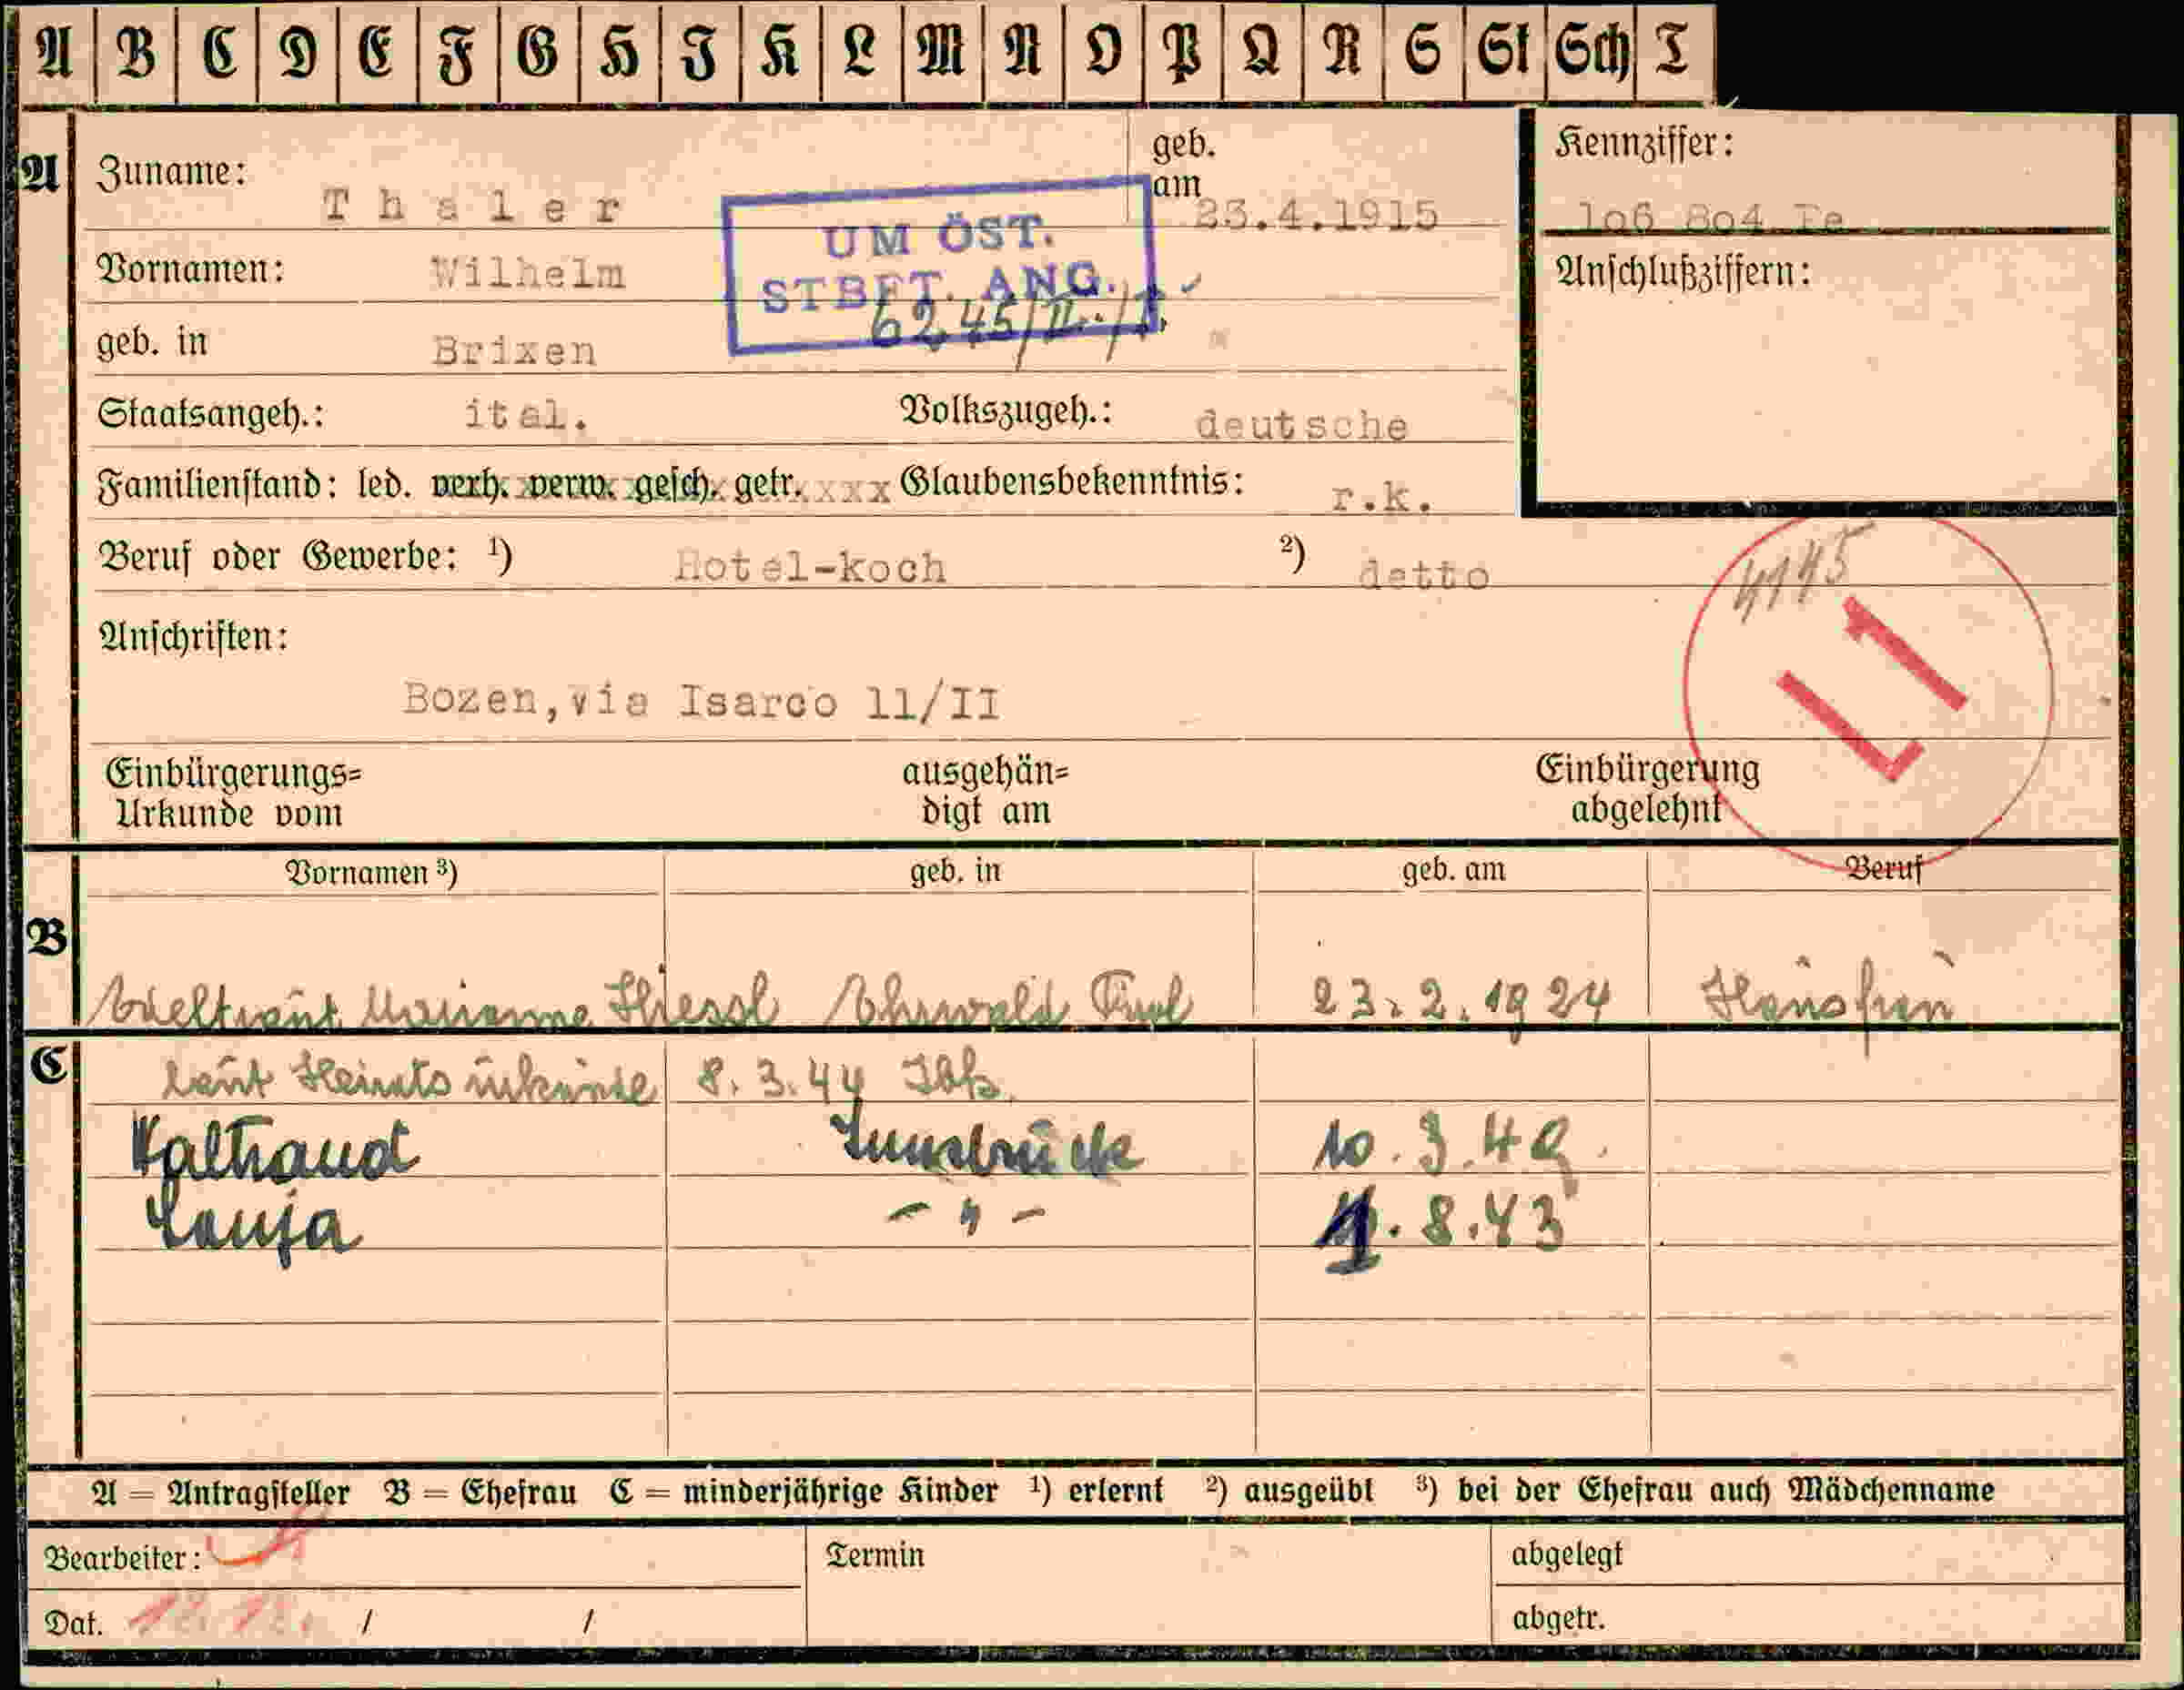 A B C D E F G H J K L M N O P Q R S St Sch T
A Zuname: Thaler geb. am 23.4.1915 Kennziffer:
106 804 Te
UM ÖST.
STBFT. ANG.
6245/II./1.
Vornamen: Wilhelm Anschlußziffern:
geb. in Brixen
Staatsangeh.: ital. Volkszugeh.: deutsche
Familienstand: led. verh. verw. gesch. getr. xxx Glaubensbekenntnis: r.k.
Beruf oder Gewerbe: 1) Hotel-koch 2) detto
4145
LI
Anschriften:
Bozen,via Isarco 11/II
Einbürgerungs= ausgehän= Einbürgerung
Urkunde vom digt am abgelehnt
Vornamen 3) geb. in geb. am Beruf
B Marianne Ehrwald Tirol 23.2.1924 Hausfrau
C laut Heiratsurkunde 8.3.44 Ibk.
Waltraud Innsbruck 10.3.42.
Sonja - " - 1.8.43
A = Antragsteller B = Ehefrau C = minderjährige Kinder 1) erlernt 2) ausgeübt 3) bei der Ehefrau auch Mädchenname
Bearbeiter: Termin abgelegt
Dat. 12.12. / / abgetr.